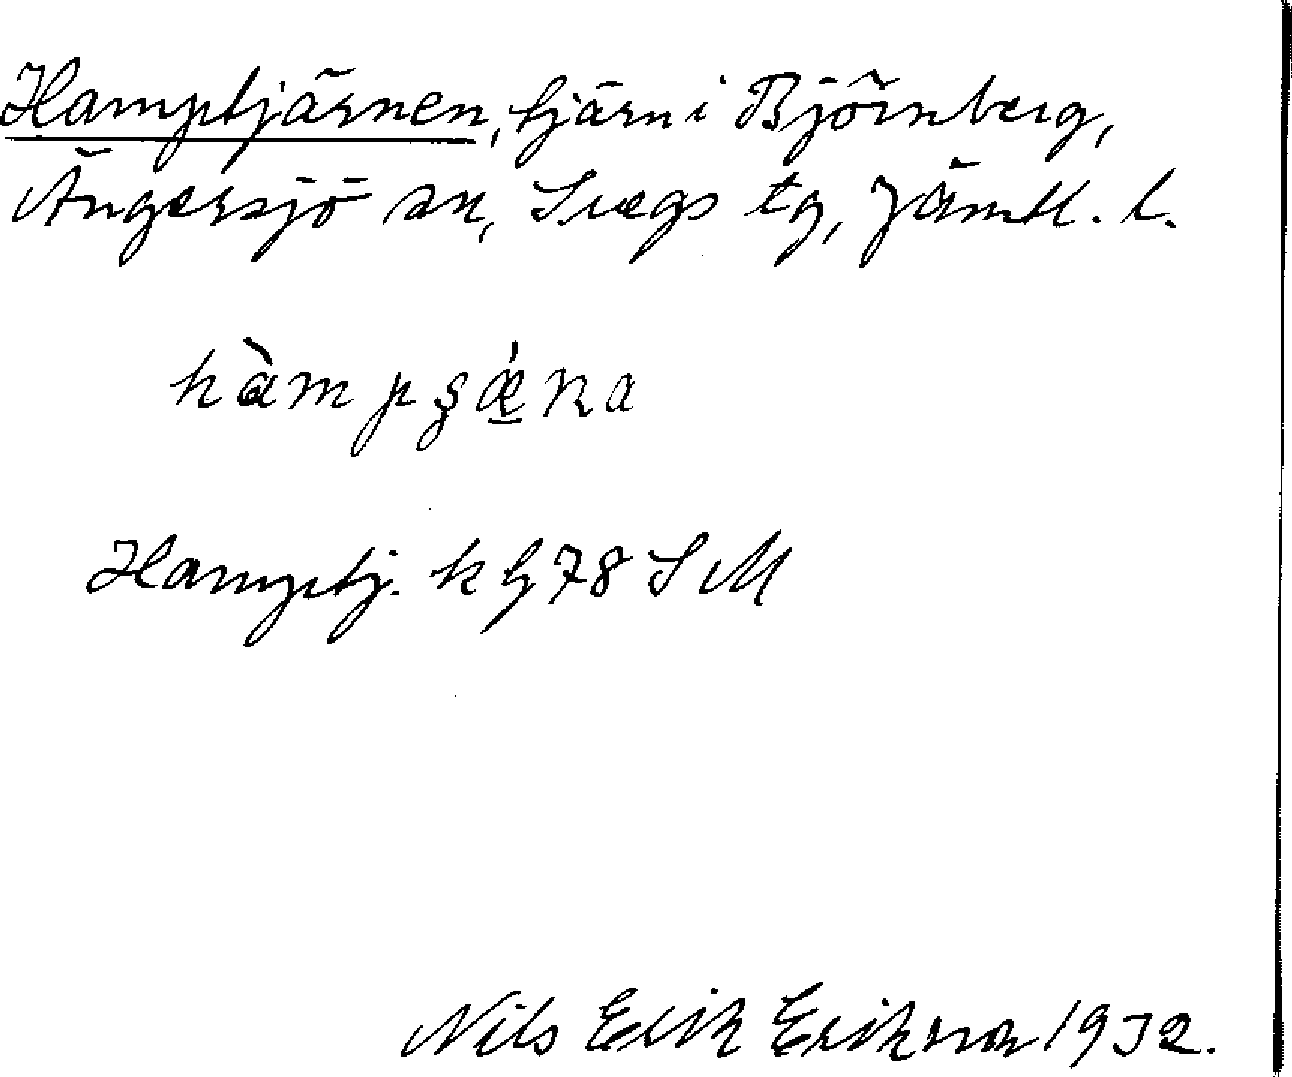 Hamptjärnen, tjärn i Björnberg,
Ängersjö sn, Svegs tg, Jämtl. l.
hàmpʂǽɴa
Hamptj. k G 78 SM
Nils Erik Eriksson 1932.